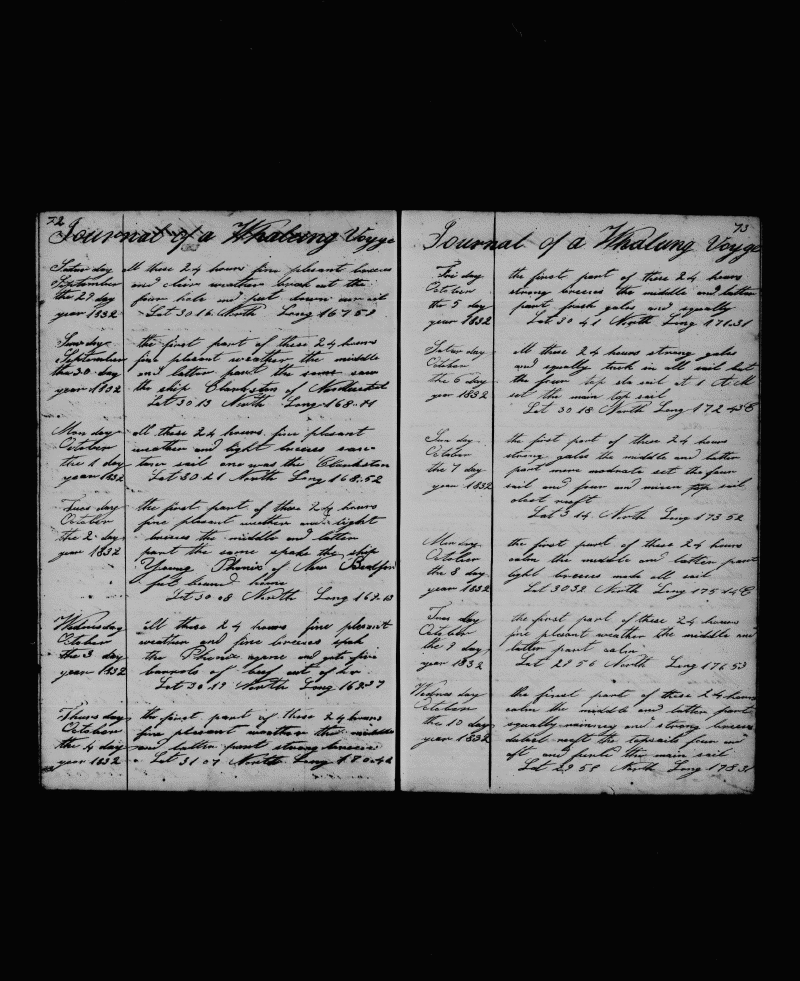 72
Journal of a Whaleing Voyge
Satur day All these 24 hours fine plesent breezes
September and cleir weather break out the
the 29 day four hole and put down
year 1832 Lat 30 16 North Long 167 58
Sunday the first part of these 24 hours
September fine plesent weather the middle
the 30 day and latter part the same saw
year 1832 the ship Clarkston of
Lat 30 13 North Long 168.11
Mon day all these 24 hours fine plesant
October weather and light breezes saw
the 1 day sail one was the Clarkston
year 1832 Lat 30 21 North Long 168.52
Tues day the first part of these 24 hours
October fine plesent wether and light
the 2 day breezes the middle and latter
year 1832 part the same spoke the ship
Young Phenix of New Bedford
ful bound home
Lat 30 08 North Long 169.13
Wednesday All these 24 hours fine plesant
October weather and fine breezes spok
the 3 day the Phenix agane and gote five
year 1832 barrels of beef out of hir
Lat 30 19 North Long 169.37
Thurs day the first part of these 24 hours
October fine plesent weather the middle
the 4 day and latter part strong breezes
year 1832 Lat 31 07 North Long 180.42
73
Journal of a Whalung Voyge
Fri day the first part of these 24 hours
October strong breezes the middle and latter
the 5 day part fresh gales and squally
year 1832 Lat 30 41 North Long 171.31
Satur day All these 24 hours strong gales
October and squally took in all sail but
the 6 day the four top sail at 1 A.M
year 1832 set the main top sail
Lat 30 18 North Long 172 45
Sun day the first part of these 24 hours
October strong gales the middle and latter
the 7 day part more moderate set the four
year 1832 sail and four and mizen top sail
reeft
Lat 3 14 North Long 173 52
Mon day the first part of these 24 hours
October calm the middle and latter part
the 8 day light breezes made all sail
year 1832 Lat 3032 North Long 175 14
Tues day the first part of these 24 hours
October fine plesant weather the middle and
the 9 day latter part calm
year 1832 Lat 29 56 North Long 176.53
Wednes day the first part of these 24 hours
October calm the middle and latter part
the 10 day squally rainney and strong breezes
year 1832 dubel reeft the topsails four and
aft and furld the main sail
Lat 29 58 North Long 178 31